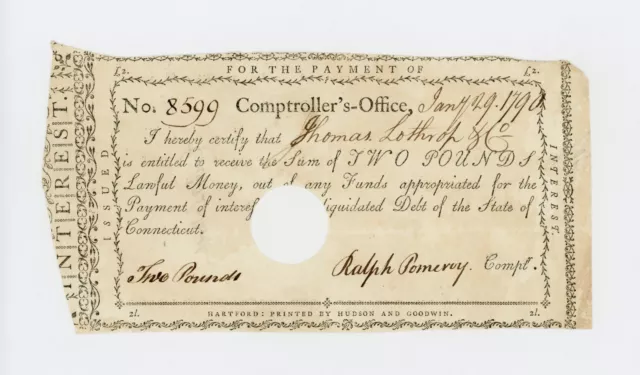 £2. FOR THE PAYMENT OF £2.
No. 8599 Comptroller's-Office, Jany 29. 1790
I hereby certify that Thomas Lothrop & Co
is entitled to receive the Sum of TWO POUNDS
Lawful Money, out of any Funds appropriated for the
Payment of interes liquidated Debt of the State of
Connecticut.
Two Pounds Ralph Pomeroy. Compt.
2l. HARTFORD: PRINTED BY HUDSON AND GOODWIN. 2l.
ISSUED
INTEREST.
INTEREST.